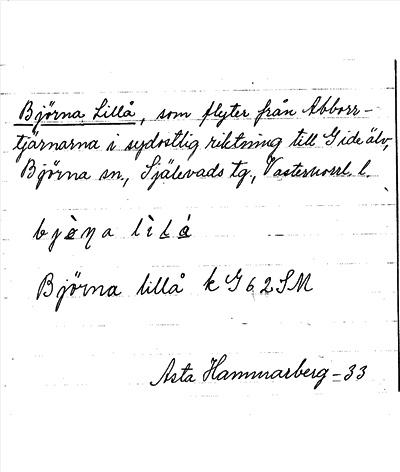 Björna Lillå, som flyter från Abborr-
tjärnarna i sydostlig riktning till Gideälv,
Björna sn., Själevads tg., Västernorrl. l.
bjö̀ŋa lìLǻ
Björna lillå k G 62 SM
Asta Hammarberg -33